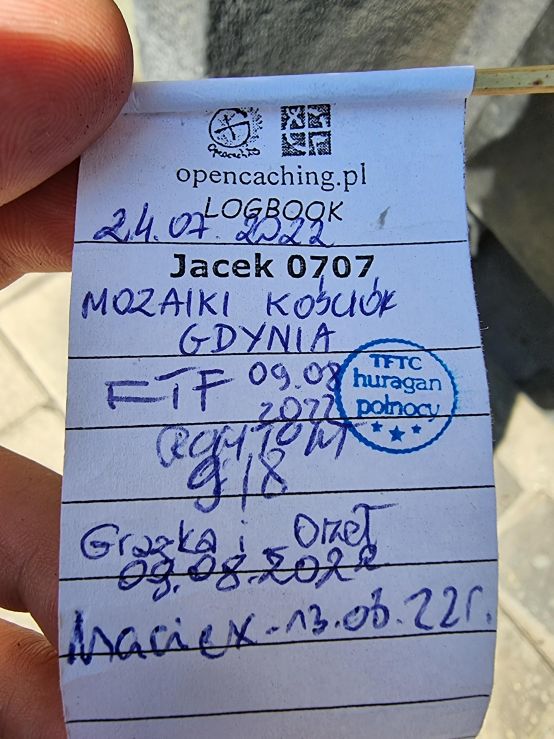 opencaching
opencaching.pl
LOGBOOK
24.07 2022
Jacek 0707
MOZAIKI KOŚCIÓŁ
GDYNIA
FTF 09.08
2022
TFTC
huragan
północy
9/8
Grażka i Orzeł
09.08.2022
Maciex - 13.08.22r.